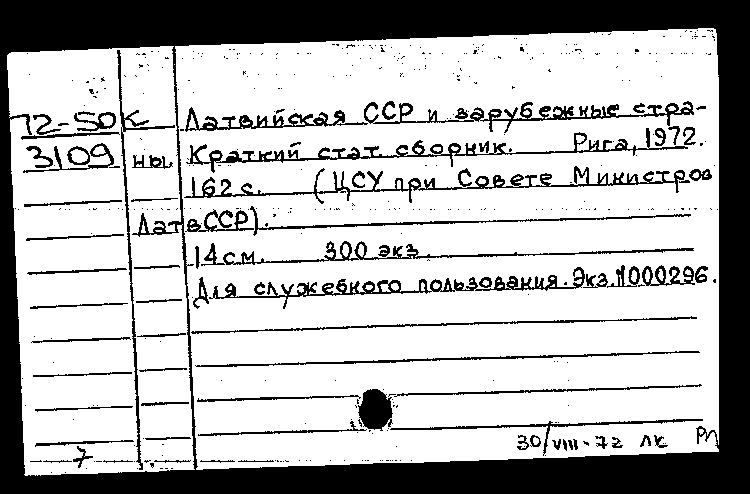 72-50к Латвийская ССР и зарубежные стра-
3109 ны. Краткий стат. сборник. Рига, 1972.
162 с. (ЦСУ при Совете Министров
Латв ССР).
14 см. 300 экз.
Для служебного пользования. Экз. N000296.
30/VIII-72 лк
7